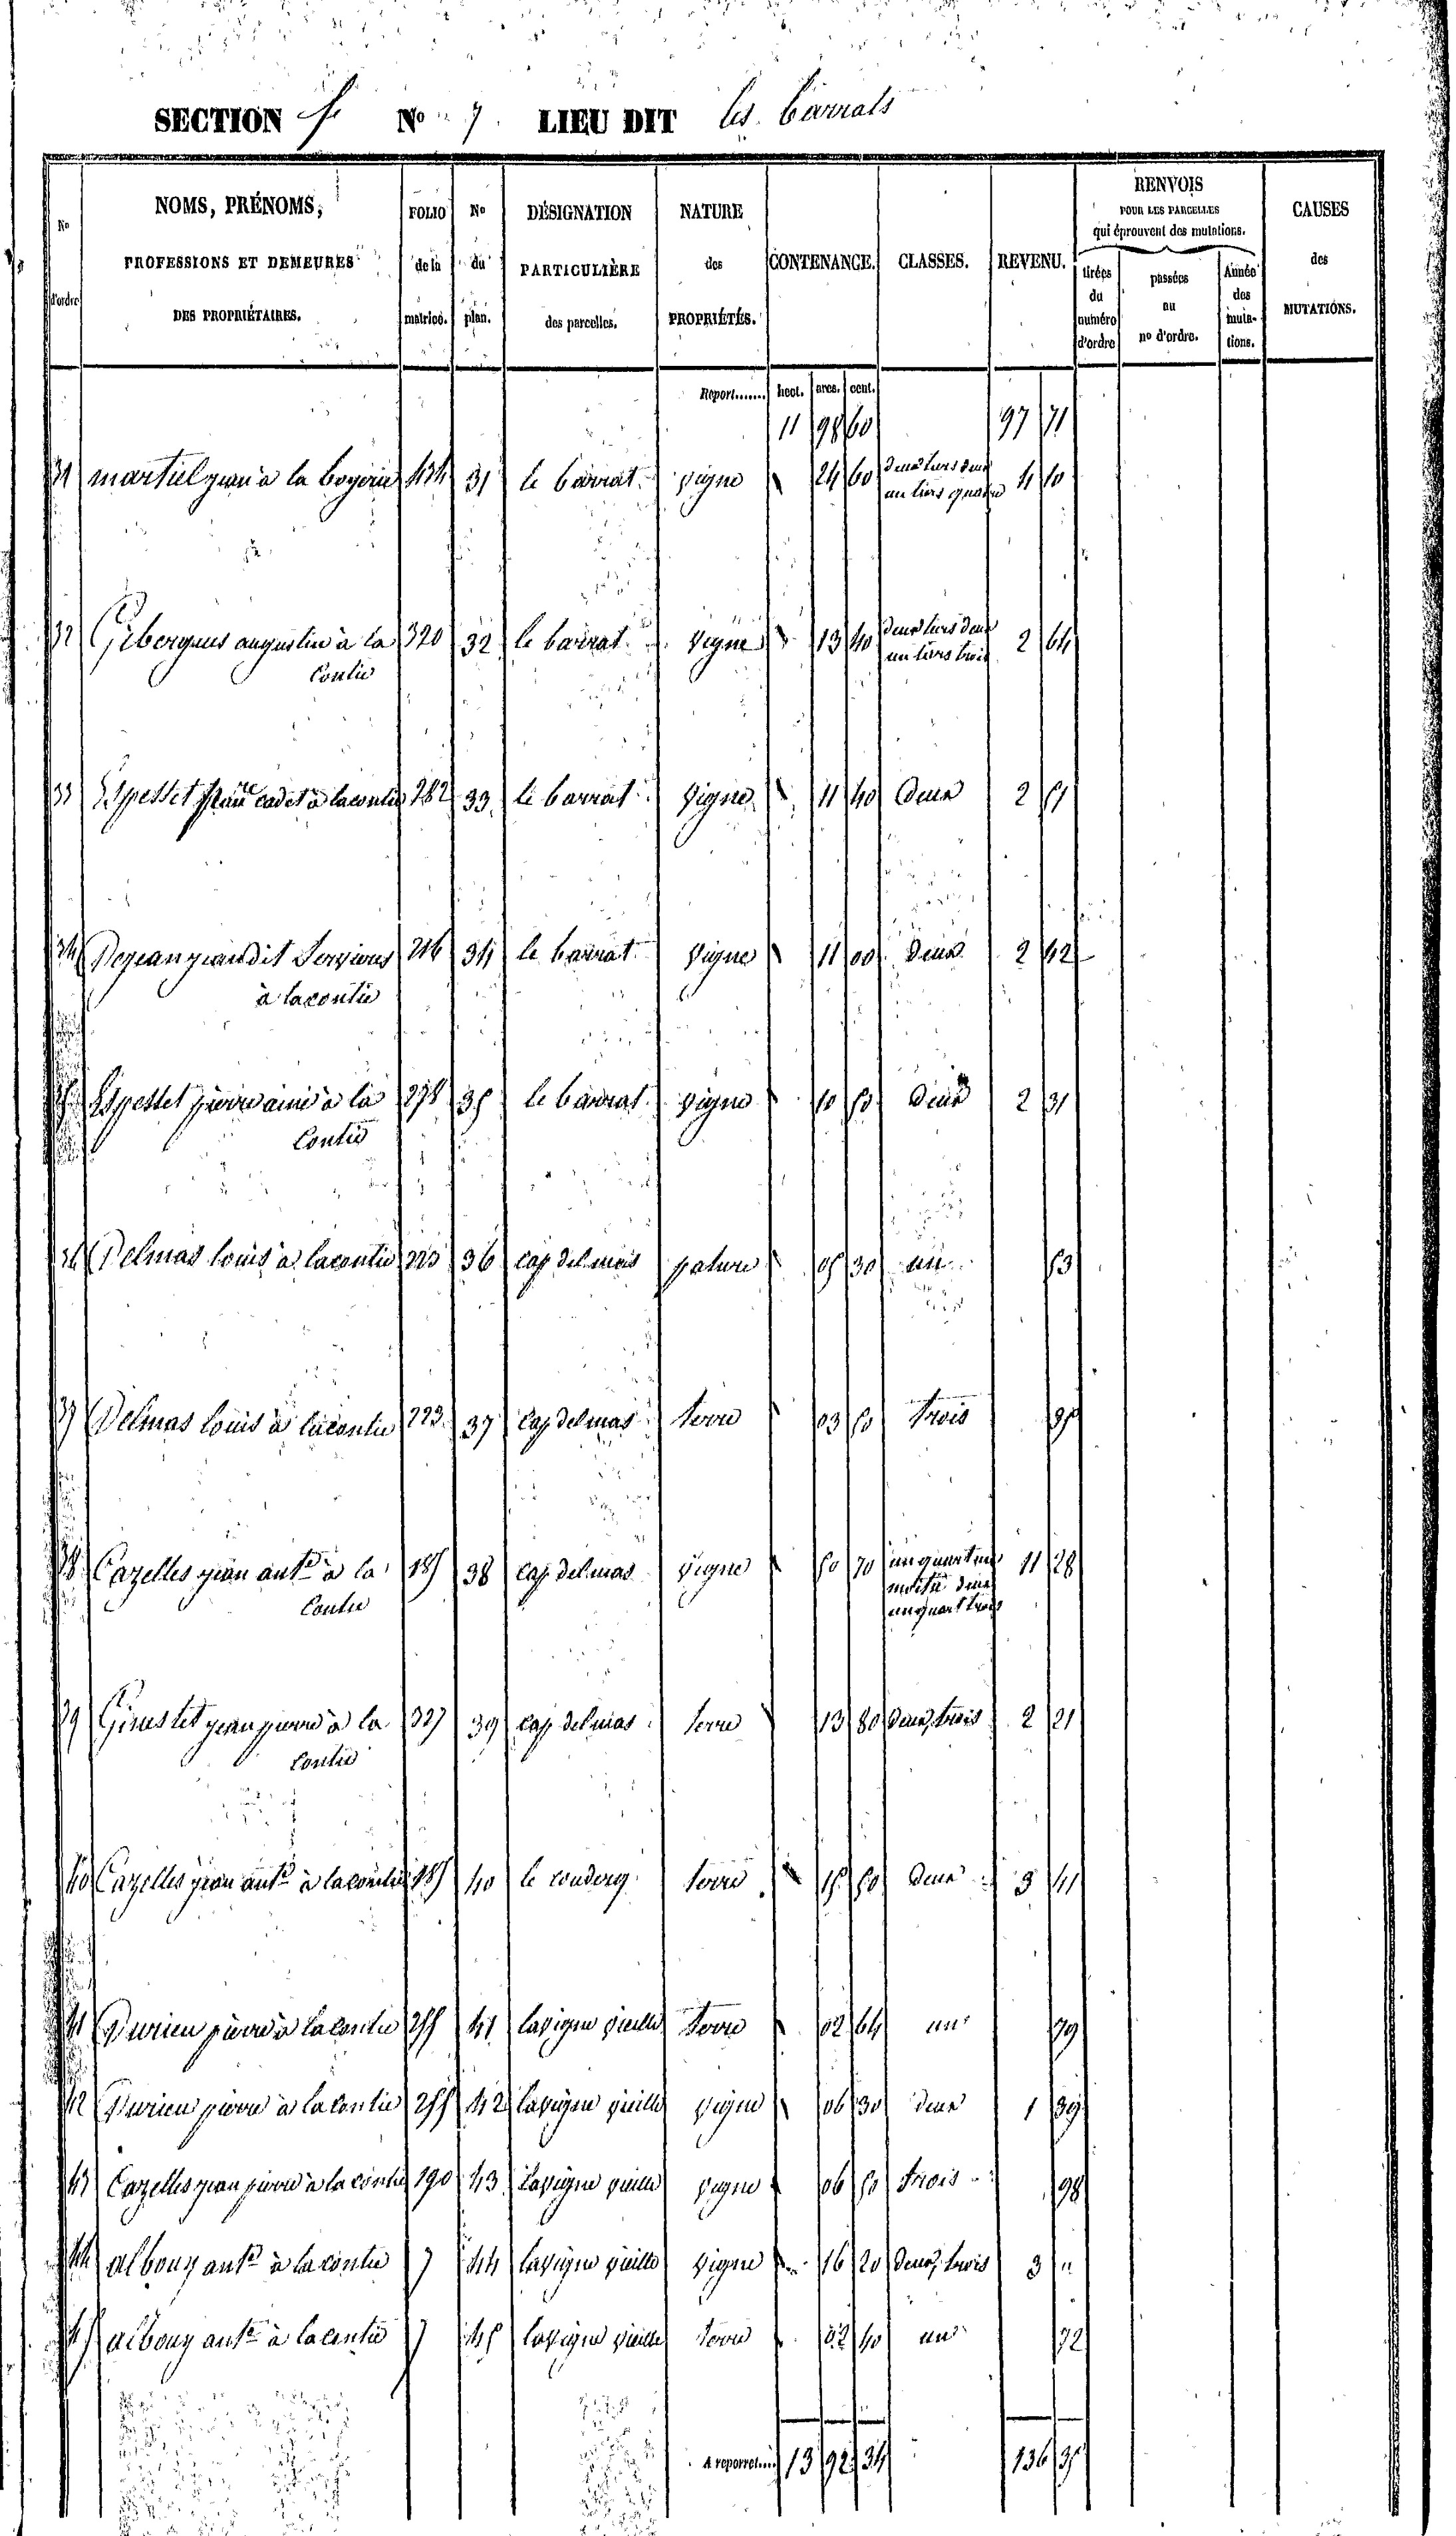 SECTION f No 7 LIEU DIT les barrals
No d'ordre
NOMS, PRÉNOMS, PROFESSIONS ET DEMEURES DES PROPRIÉTAIRES.
FOLIO de la matrice.
No du plan.
DÉSIGNATION PARTICULIÈRE des parcelles.
NATURE des PROPRIÉTÉS.
CONTENANCE.
CLASSES.
REVENU.
RENVOIS POUR LES PARCELLES qui éprouvent des mutations.
tirées du numéro d'ordre
passées au no d'ordre.
Année des muta-tions.
CAUSES des MUTATIONS.
Report....... hect. ares. cent.
11 98 60 97 71
31 martiel jean à la boyerie 434 31 le barrat vigne 24 60 deux tiers deux 4 10
un tiers quatre
32 Gibergues augustin à la 320 32 le barrat vigne 13 40 deux tiers deux 2 64
Contie un tiers trois
33 Espesset cadet à lacontie 282 33 le barrat vigne 11 40 deux 2 51
34 Dejean jean dit à lacontie 216 34 le barrat vigne 11 00 deux 2 42
35 Espesset pierre ainé à la 278 35 le barrat vigne 10 50 deux 2 31
Contie
36 Delmas louis à lacontie 223 36 cap del mas pature 05 30 un 53
37 Delmas louis à lacontie 223 37 cap del mas terre 03 50 trois 35
38 Cazelles jean ant.e à la 185 38 cap del mas vigne 50 70 un quart un 11 28
Contie moitié deux
un quart trois
39 Ginestet jean pierre à la 327 39 cap del mas terre 13 80 deux, trois 2 21
Contie
40 Cazelles jean ant.e à lacontie 185 40 le couderq terre 15 50 deux 3 41
41 Durieu pierre à lacontie 255 41 lavigne vieille terre 02 64 un 79
42 Durieu pierre à lacontie 255 42 lavigne vieille vigne 06 30 deux 1 39
43 Cazelles jean pierre à la contie 190 43 lavigne vieille vigne 06 50 trois 98
44 albouy ant.e à la contie 7 44 lavigne vieille vigne 16 20 deux, trois 3 "
45 albouy ant.e à lacontie 7 45 lavigne vieille terre 02 40 un 72
A reporter.... 13 92 34 136 35